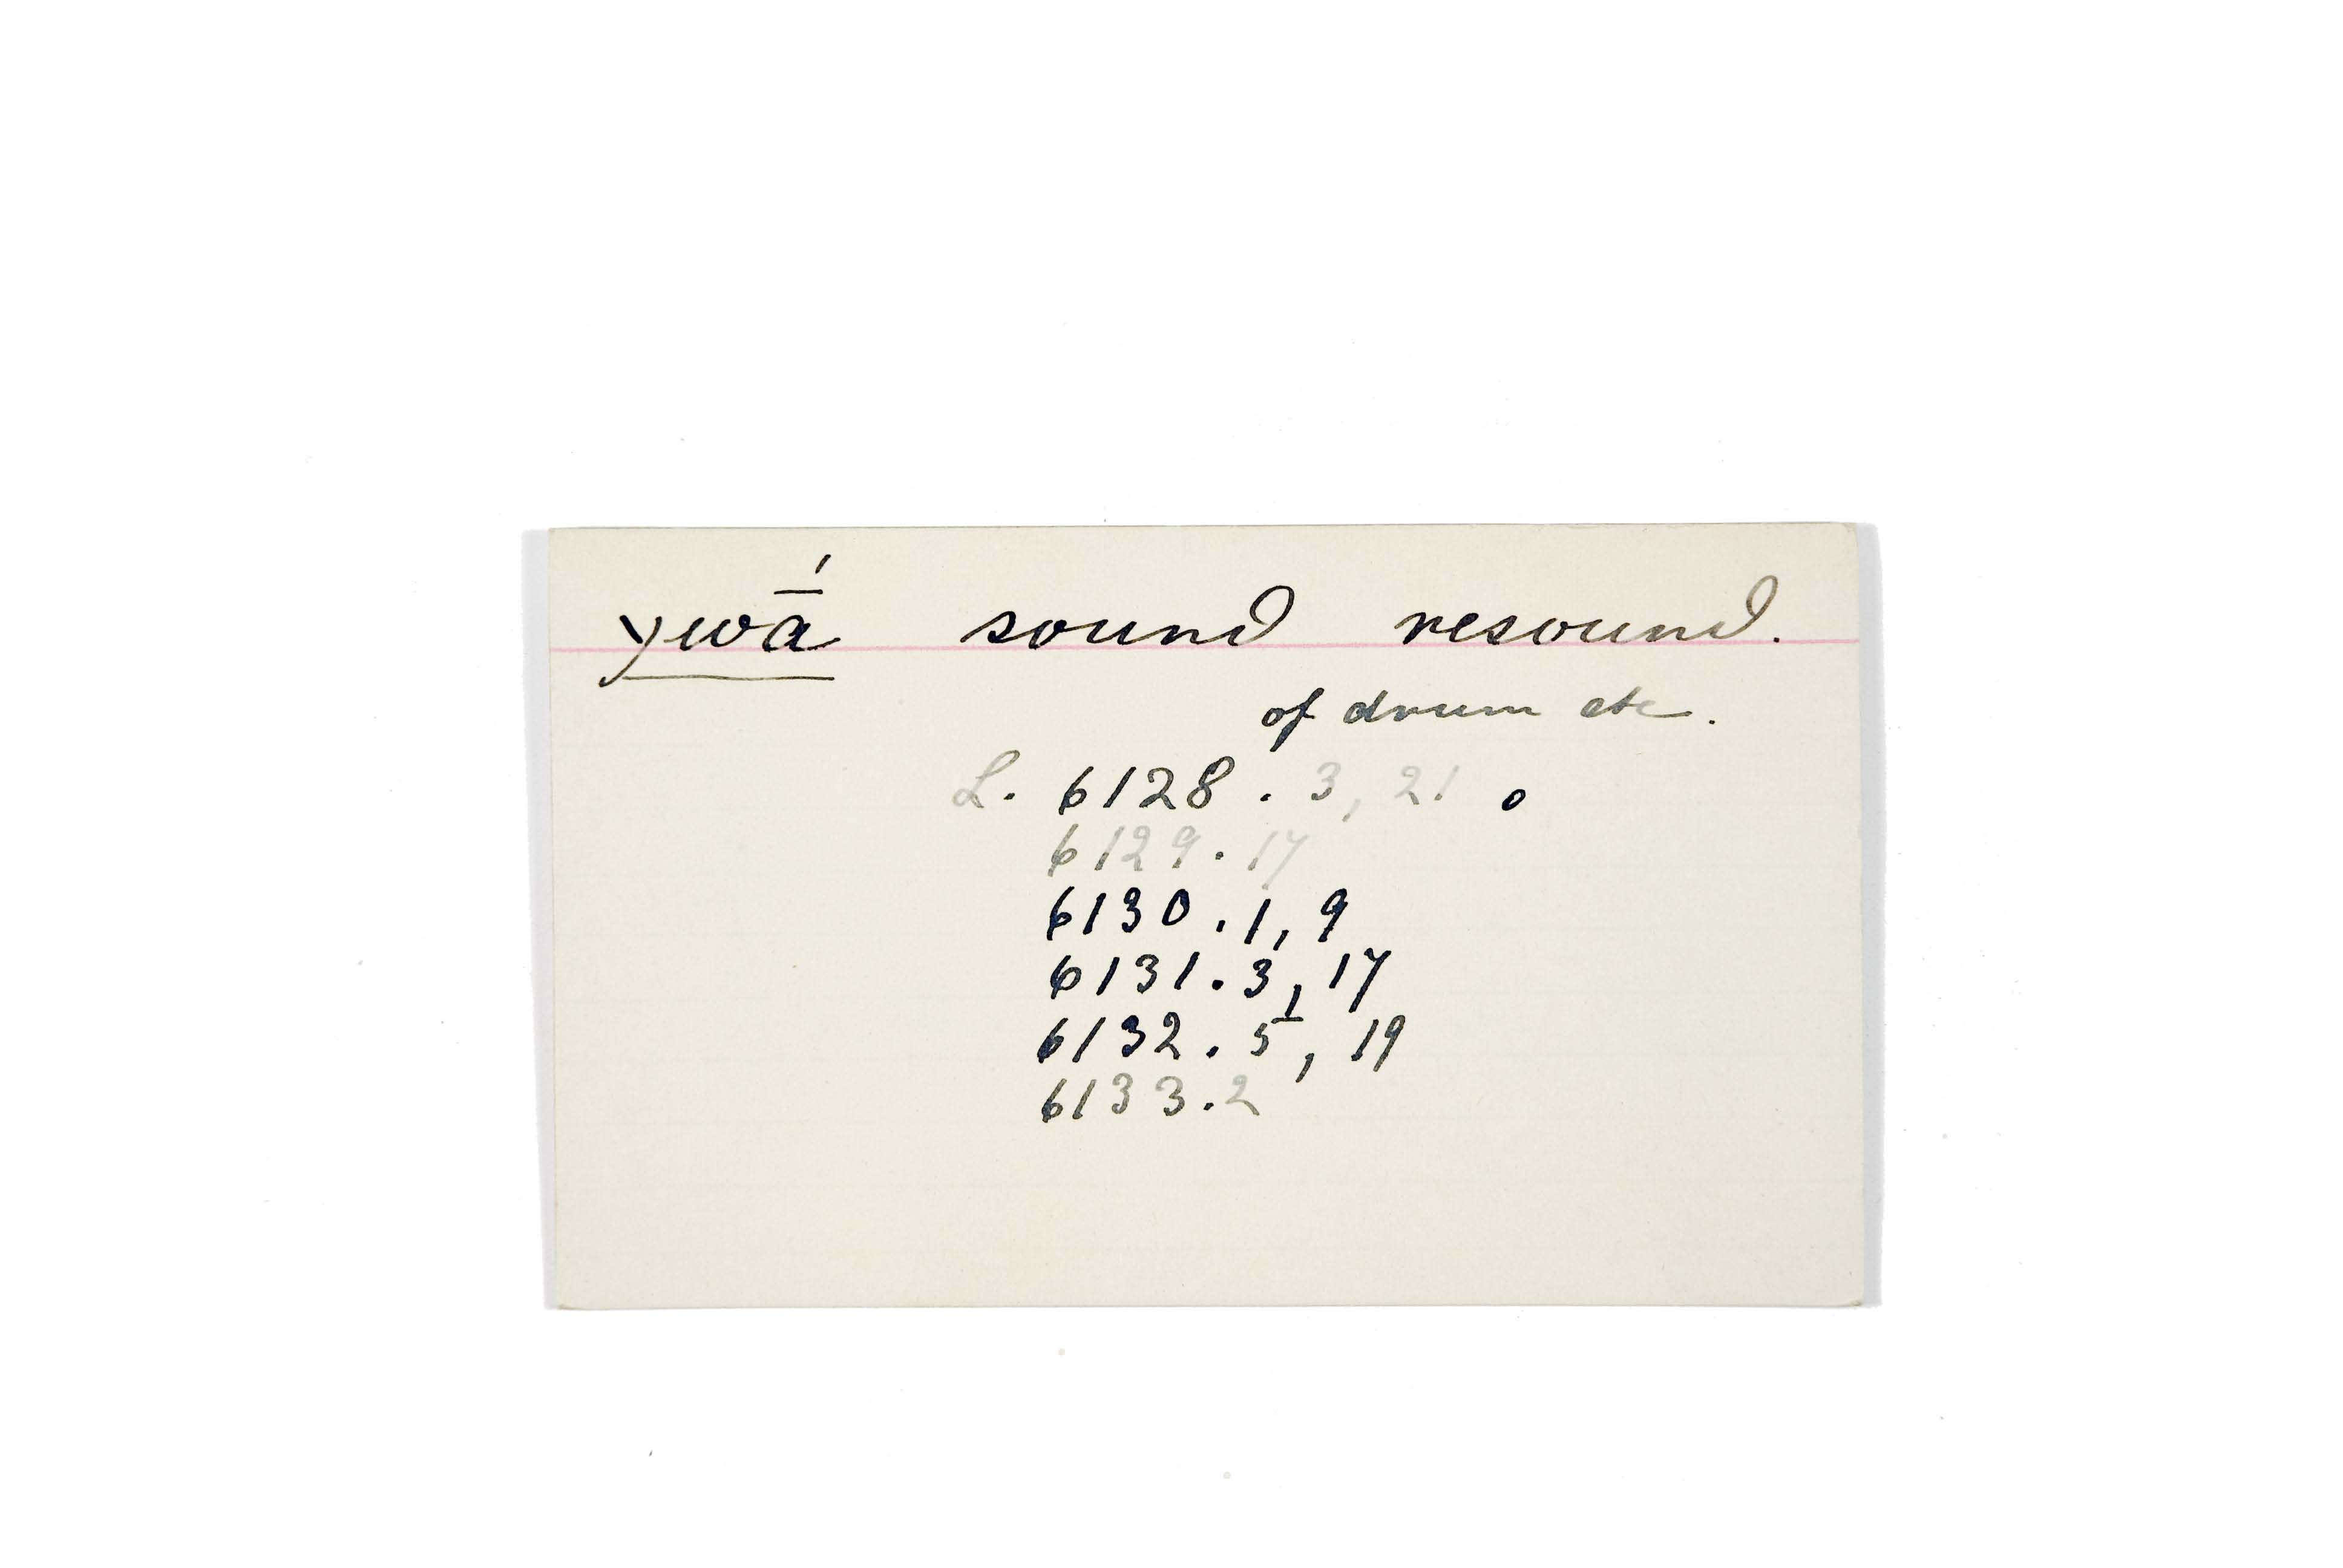 ywā́ sound resound.
of drum etc.
L. 6128. 3, 21.
6129. 17
6130. 1, 9
6131. 3, 17
6132. 5¹, 19
6133. 2